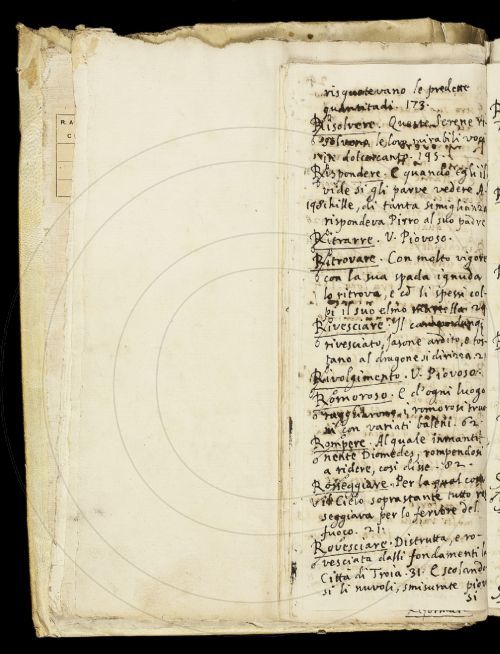 risquotevano le predette
quantitadi. 173.
Risolvere. Queste Serene ri
solvono le loro mirabili voci
in dolce canto. 195.
Rispondere. E quando egli il
vide sì gli parve vedere A-
chille, di tanta simiglianza
rispondeva Pirro al suo padre
Ritrarre. V. Piovoso.
Ritrovare. Con molto vigore
con la sua spada ignuda
lo ritrova, e co li spessi col-
pi il suo elmo
Rivesciare. Il
rivesciato, Jasone ardito, e tos-
tano al dragone si dirizza. 2
Rivolgimento. V. Piovoso.
Romoroso. E d'ogni luogo
raggiiarono, i romorosi truo
ni con variati baleni. 62.
Rompere. Al quale inmanti-
nente Diomedes, rompendosi
a ridere, così disse. 62.
Rosseggiare. Per la qual cosa
il Cielo soprastante tutto ros
seggiava per lo fervore del
fuoco. 21.
Rovesciare. Distrutta, e ro-
vesciata dalli fondamenti la
Città di Troia. 31. E scolando
si li nuvoli, smisurate piov
si